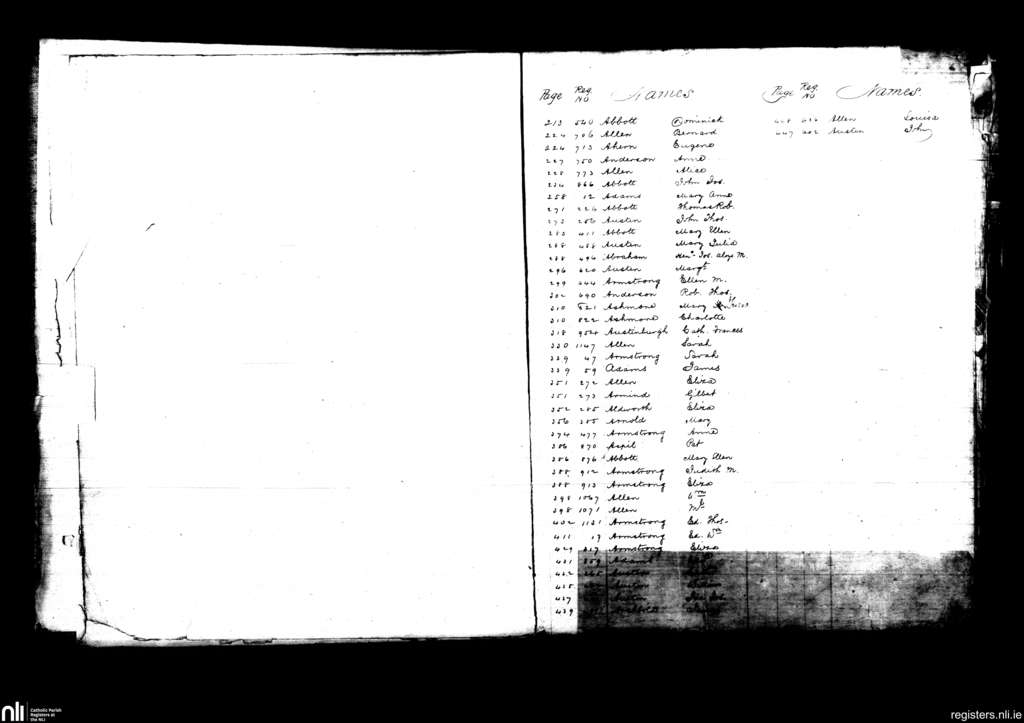 Page Reg. No Names
213 540 Abbott Dominick
224 706 Allen Bernard
224 713 Ahern Eugene
227 750 Anderson Anne
228 773 Allen Alice
234 866 Abbott John Jos.
258 12 Adams Mary Anne
271 224 Abbott Thomas Rob.
273 256 Austen John Thos.
283 411 Abbott Mary Ellen
288 488 Austen Mary Julia
288 494 Abraham Jos. Aloys M.
296 620 Austen Margt
299 644 Armstrong Ellen M.
302 690 Anderson Rob. Thos.
310 821 Ashmore Mary
310 822 Ashmore Charlotte
318 952 Austinburgh Cath. Frances
330 1147 Allen Sarah
339 47 Armstrong Sarah
339 59 Adams James
351 272 Allen Eliza
351 273 Armind Gilbert
352 285 Aldworth Eliza
356 355 Arnold Mary
374 477 Armstrong Anne
386 870 Aspil Pat
386 876 Abbott Mary Ellen
388 912 Armstrong Judith M.
388 913 Armstrong Eliza
398 1067 Allen
398 1071 Allen
402 1121 Armstrong Ed. Thos.
411 17 Armstrong Ed. Wm
429 317 Armstrong Eliza
431 359 Adams
432 365 Austen
435 Austen
437 Austin
439
Page Reg. No Names.
Allen Louisa
447 Austen John
nli Catholic Parish
Registers at
the NLI
registers.nli.ie